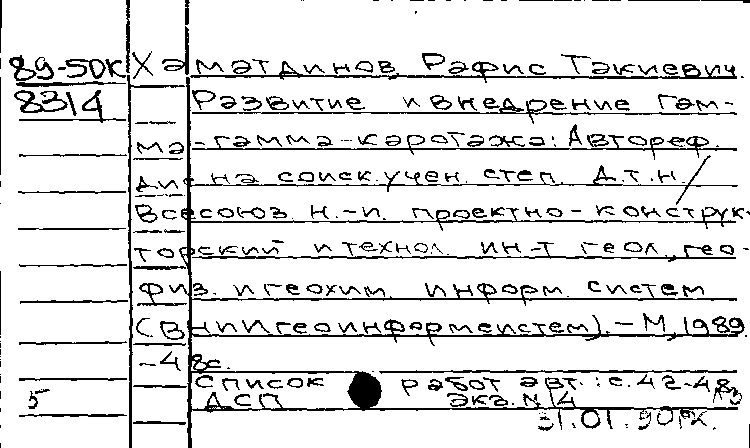 89-50К Хаматдинов Рафис Такиевич.
8314 Развитие и внедрение гам-
ма-гамма-каротажа: Автореф.
дис на соиск. учен. степ. д.т.н /
Всесоюз н.-и. проектно-конструк-
торский и технол. ин-т геол., гео-
физ. и геохим. информ. систем
(ВНИИгеоинформсистем). – М, 1989
-48с.
Список работ авт.: с. 42-48
5 ДСП экз. N 14
31.01.90РЖ.